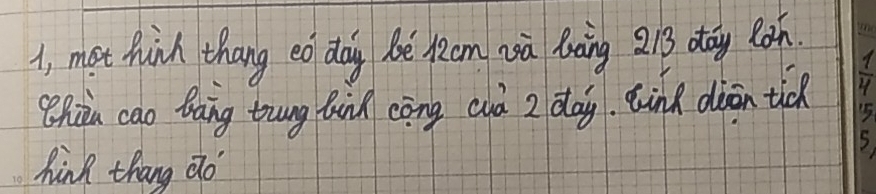 1, một hình thang có đáy bé 12cm và bằng 2/3 đáy lớn.
Chiều cao bằng trung bình cộng của 2 đáy. tính diện tích
hình thang đó